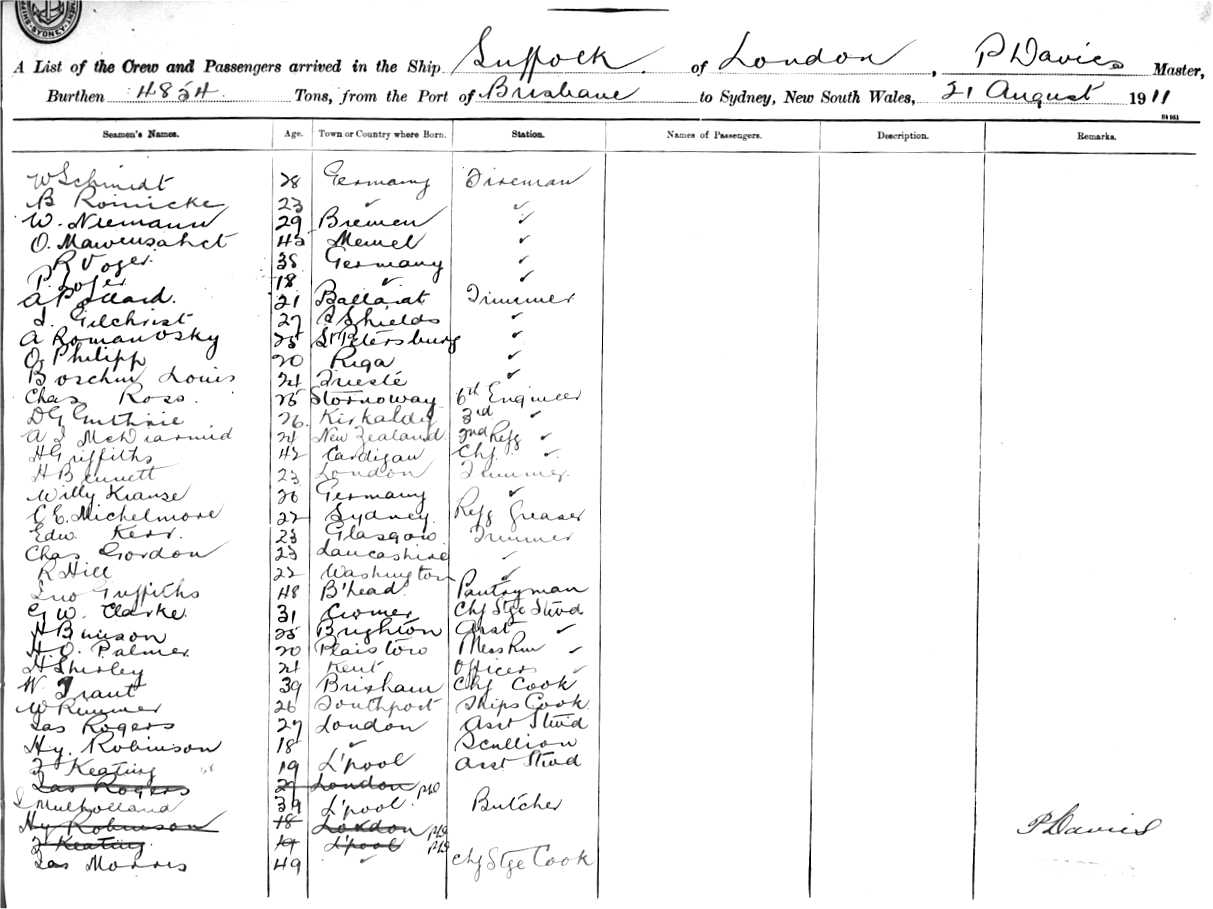 SYDNEY
A List of the Crew and Passengers arrived in the Ship Suffock of London, P Davies Master,
Burthen 4854 Tons, from the Port of Brisbane to Sydney, New South Wales, 21 August 1911
Seamen's Names. Age. Town or Country where Born. Station. Names of Passengers. Description. Remarks.
W Schmidt 28 Germany Fireman
B Roinicke 23 ✓ ✓
W. Niemann 29 Bremen ✓
O. 43 Memel ✓
R Voger 38 Germany ✓
P. 18 ✓ ✓
A 21 Ballarat Trimmer
J. Gilchrist 27 S Shields ✓
A Romanosky 25 St Petersburg ✓
O Philipp 20 Riga ✓
Boschin Louis 24 Trieste ✓
Chas Ross 25 Stornoway 6th Engineer
D G Guthrie 26 Kirkaldy 3rd ✓
A J McDiarmid 24 New Zealand 2nd Refg ✓
H Griffiths 42 Cardigan Chf ✓
H Bennett 23 London Trimmer
Willy Krause 20 Germany ✓
C E. Michelmore 22 Sydney Refg Greaser
Edw Kerr. 23 Glasgow Trimmer
Chas Gordon 23 Lancashire ✓
R Hill 22 Washington ✓
Jno Griffiths 48 B'head Pantryman
G W. Clarke 31 Cromer Chf Stge Stwd
H 25 Brighton Asst ✓
H. O. Palmer 20 Plaistow Mess Rm ✓
H Shirley 21 Kent Officers ✓
W Trant 39 Brixham Chf Cook
W Rimmer 26 Southport Ships Cook
Jas Rogers 27 London Asst Stwd
Hy. Robinson 18 ✓ Scullion
F Keating 19 L'pool Asst Stwd
Jas Rogers 27 London
J Mulholland 39 L'pool Butcher
Hy Robinson 18 London P Davies
F Keating 19 L'pool
Jas Morris 49 ✓ Chf Stge Cook